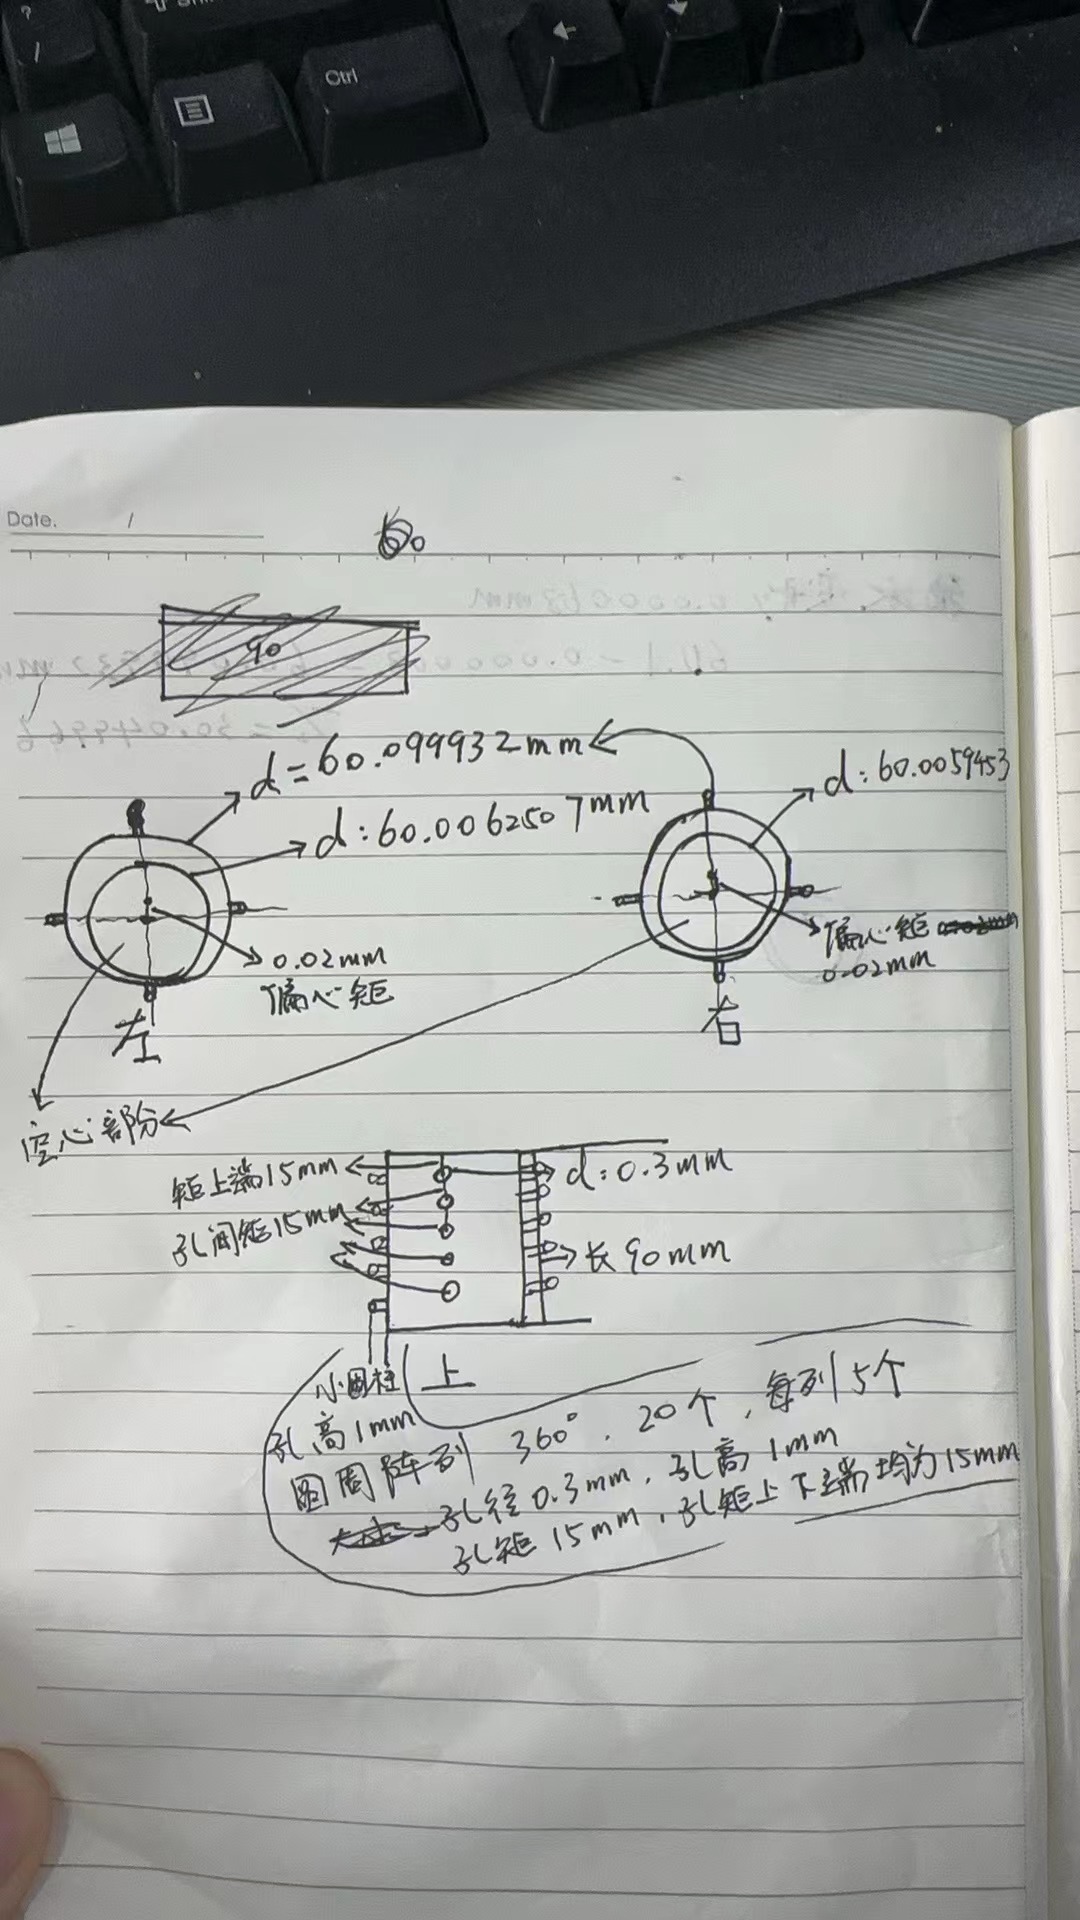 ?
/
Shift
Ctrl
Date. /
90
d=60.099932mm
d:60.0059453
d:60.0062507mm
0.02mm
偏心距
偏心距
0.02mm
左
右
空心部份
距上端15mm
d:0.3mm
孔间距15mm
长90mm
小圆柱
上
孔高1mm
圆周阵列 360°. 20个, 每列5个
孔径0.3mm, 孔高1mm
孔距15mm, 孔距上下端均为15mm